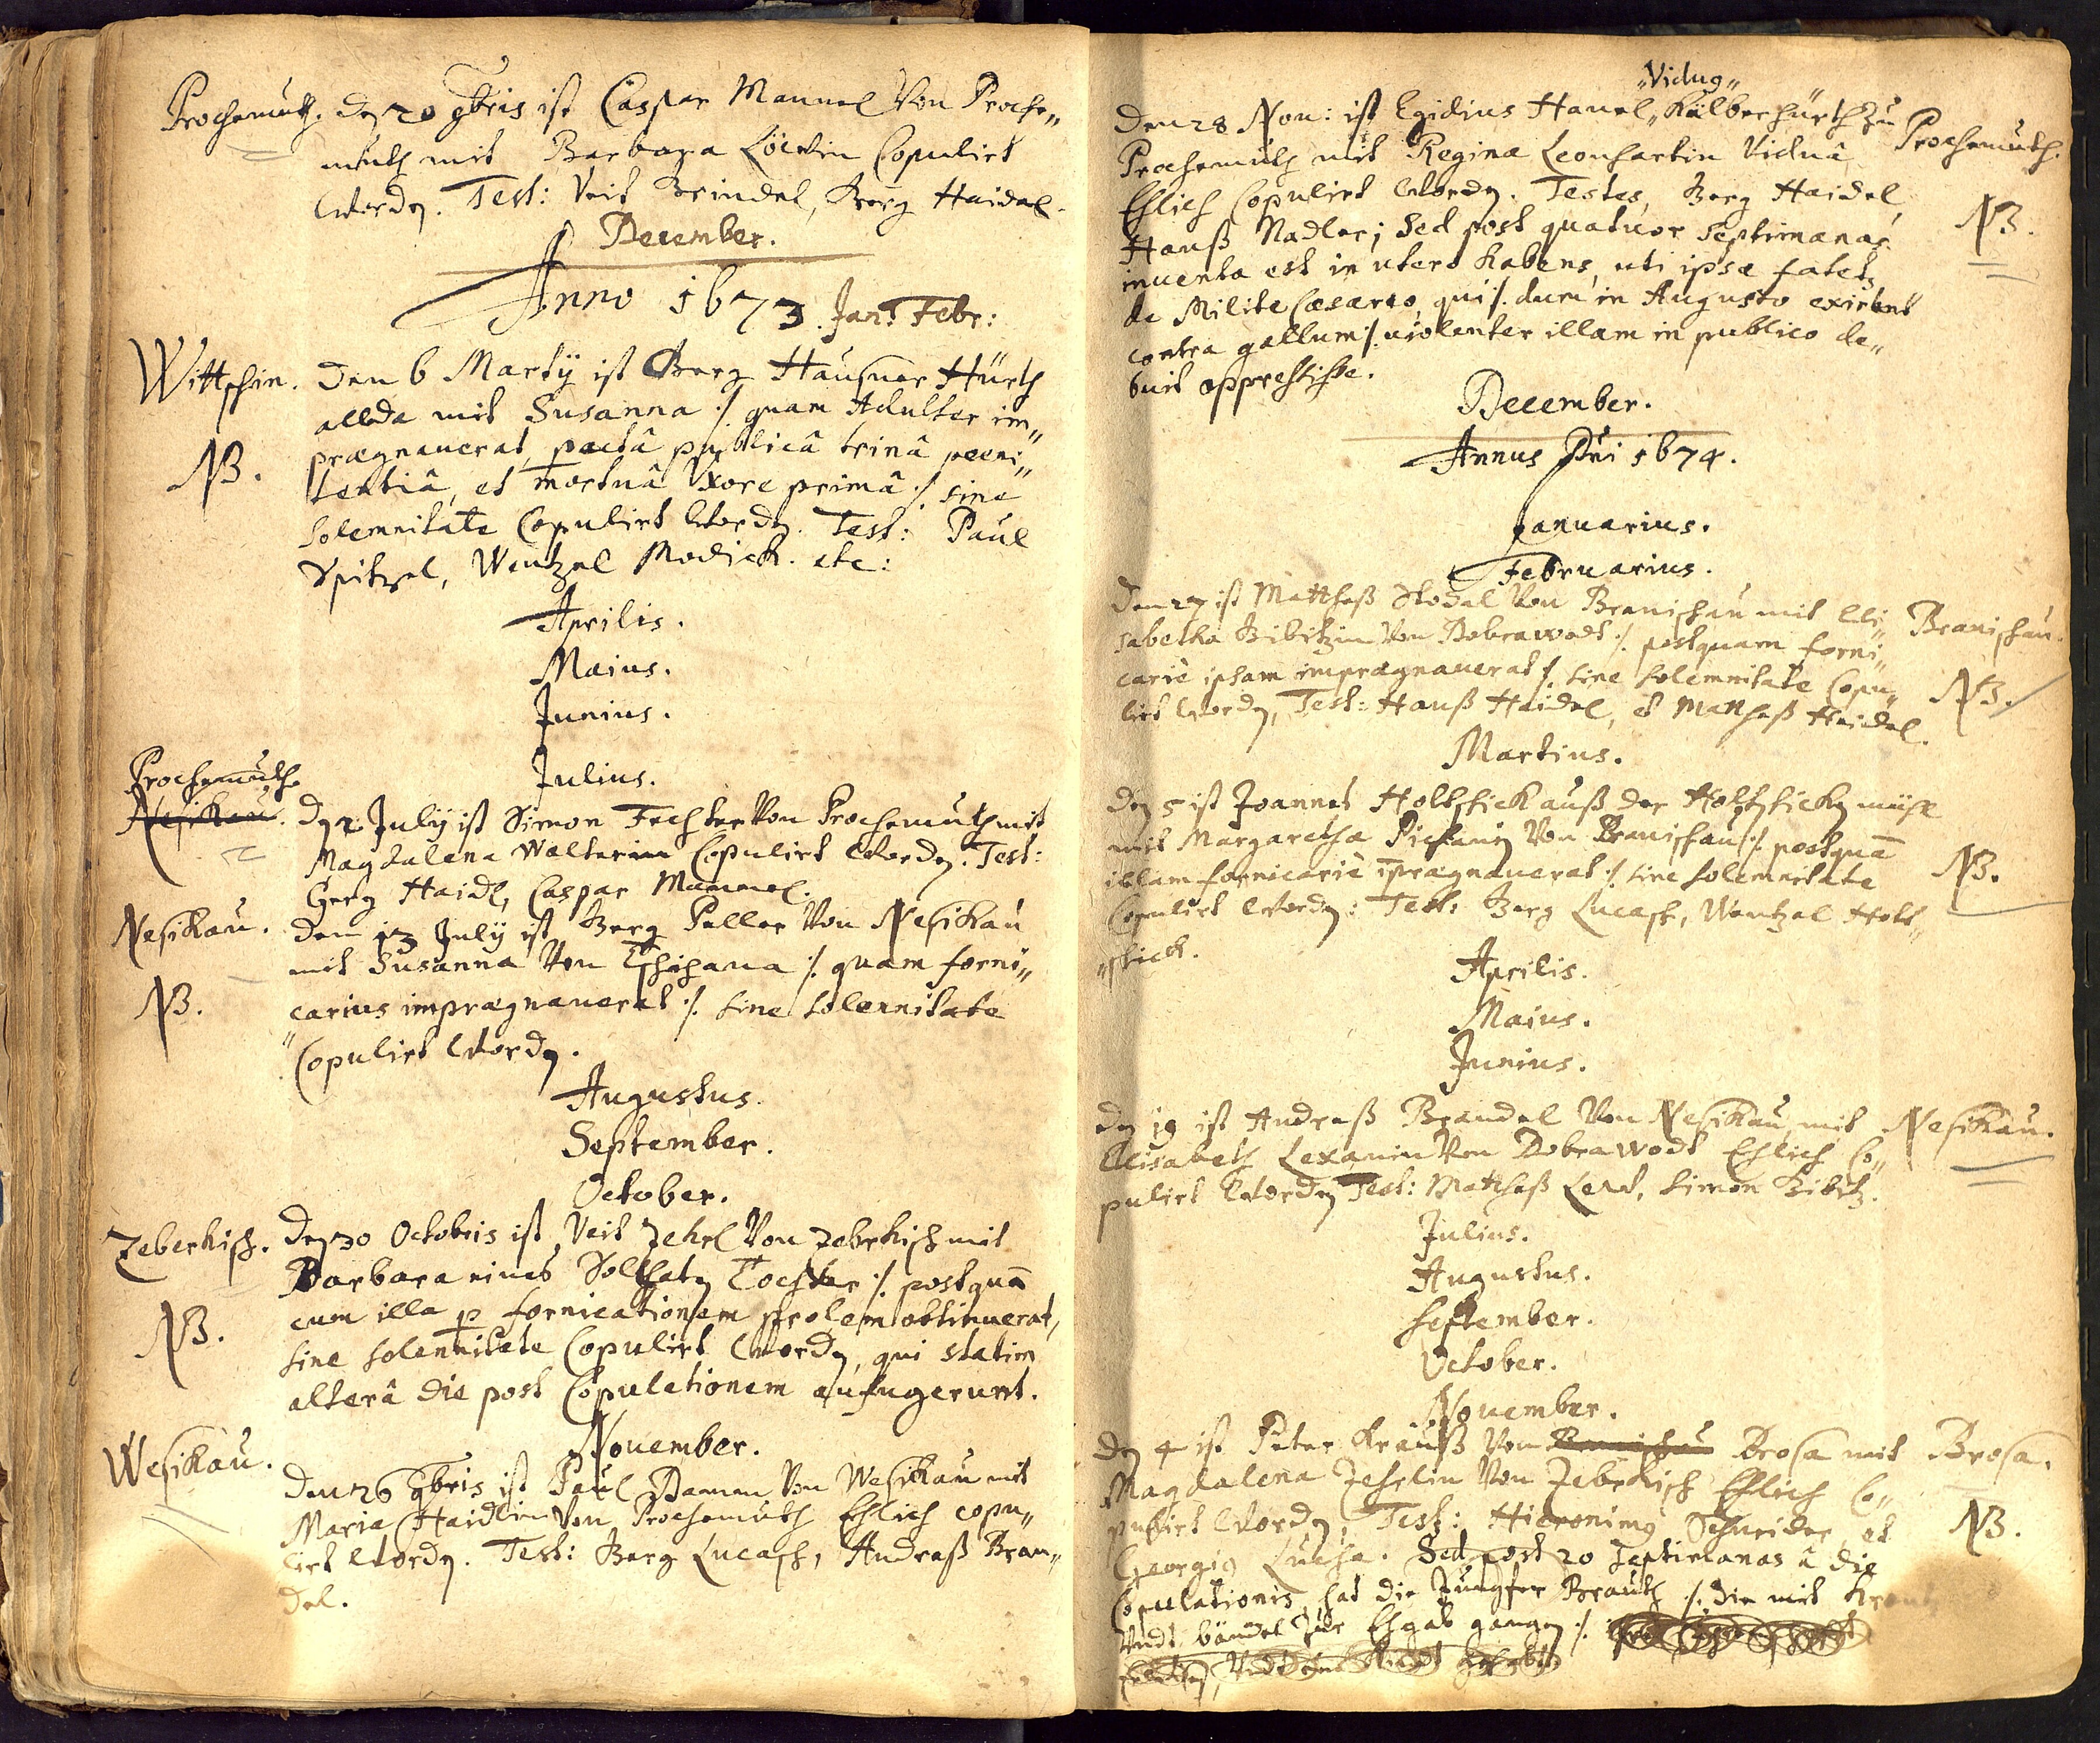 Prochomuth. den 20 9bris ist Caspar Mannel Von Procho„
muth mit Barbara Löwin Copulirt
worden. Test: Veit Brindel, Georg Haidel.
December.
Anno 1673. Jan: Febr:
Wittschin. Den 6 Martÿ ist Georg Hausner Hürth
allda mit Susanna ./. quam Adulter im„
NB. prægnauerat, pactâ publicâ trinâ pœni„
tentiâ, et mortuâ Uxore primâ ./. sine
solemnitate Copulirt worden. Test: Paul
Spitzel, Wentzel Modick. etc:
Aprilis.
Maius.
Junius.
Julius.
Prochomuth.
Nesikau. Den 2 Julÿ ist Simon Fechter Von Prochomuth mit
Magdalena Walterin Copulirt worden. Test:
Georg Haidl, Caspar Mannel.
Nesikau. Den 13 Julÿ ist Georg Peller Von Nesikau
mit Susanna Von Tschihana ./. quam forni„
NB. carius imprægnauerat ./. sine solennitate
Copulirt worden.
Augustus.
September.
October.
Zeberhisch. Den 30 Octobris ist Veit Zehrl Von Zebrhisch mit
Barbara eines Solthaten Tochter ./. postquā
cum illa p fornicationem prolem obtinuerat,
NB. sine solennitate Copulirt worden, qui statim
alterâ die post Copulationem aufugerunt.
November.
Wesikau. Den 26 9bris ist Paul Damm Von Wesikau mit
Maria Haidlin Von Prochomuth Ehlich copu„
lirt worden. Test: Georg Lucasch, Andreß Bran„
del.
„Vidug„
Den 28 Nou: ist Egidius Hanel, Kälberhürth zu Prochomuth.
Prochomuth mit Regina Leonhartin Viduâ
Ehlich Copulirt worden. Testes, Georg Haidel,
Hanß Nadler; Sed post quatuor septimanas NB.
inuenta est in utero habens, uti ipsa fatet
de Milite Cæsareo, qui ./. dum in Augusto exirent
contra gallum ./. uiolenter illam in publico de„
buit oppressisse.
December.
Annus Dni 1674.
Januarius.
Februarius.
Den 27 ist Matthæß Stodal Von Branischau mit Eli„ Branischau.
sabetha Bibitzin Von Dobrawodt ./. postquam forni„
carie ipsam imprægnauerat ./. sine solemnitate Copu„ NB.
lirt worden, Test: Hanß Haidel, et Matthæß Haidel.
Martius.
Den 5 ist Joannes Holtstick auß der Holtzsticken mühl
mit Margaretha Von Branischau ./. postquā
illam fornicariè ipragnauerat ./. sine solemnitate NB.
Copulirt worden: Test: Georg Lucasch, Wentzel Holt„
„stick.
Aprilis.
Maius.
Junius.
Den 19 ist Andreß Brandel Von Nesikau mit Nesikau.
Elisabeth Lexanin Von Dobrawodt Ehlich Co„
pulirt worden Test: Matthæß Simon Bibitz.
Julius.
Augustus.
September.
October.
November.
Den 4 ist Peter Krauß Von Branischau Brosa mit Brosa.
Magdalena Zehrlin Von Zebrhisch Ehlich Co„
pulirt worden, Test: Hieronimg Schneider et NB.
Georgig Lucha. Sed post 20 Septimanas â die
Copulationis, hat die Jungfer Brauth ./. die mit
Vndt bändel zur Ehgab gangen ./.